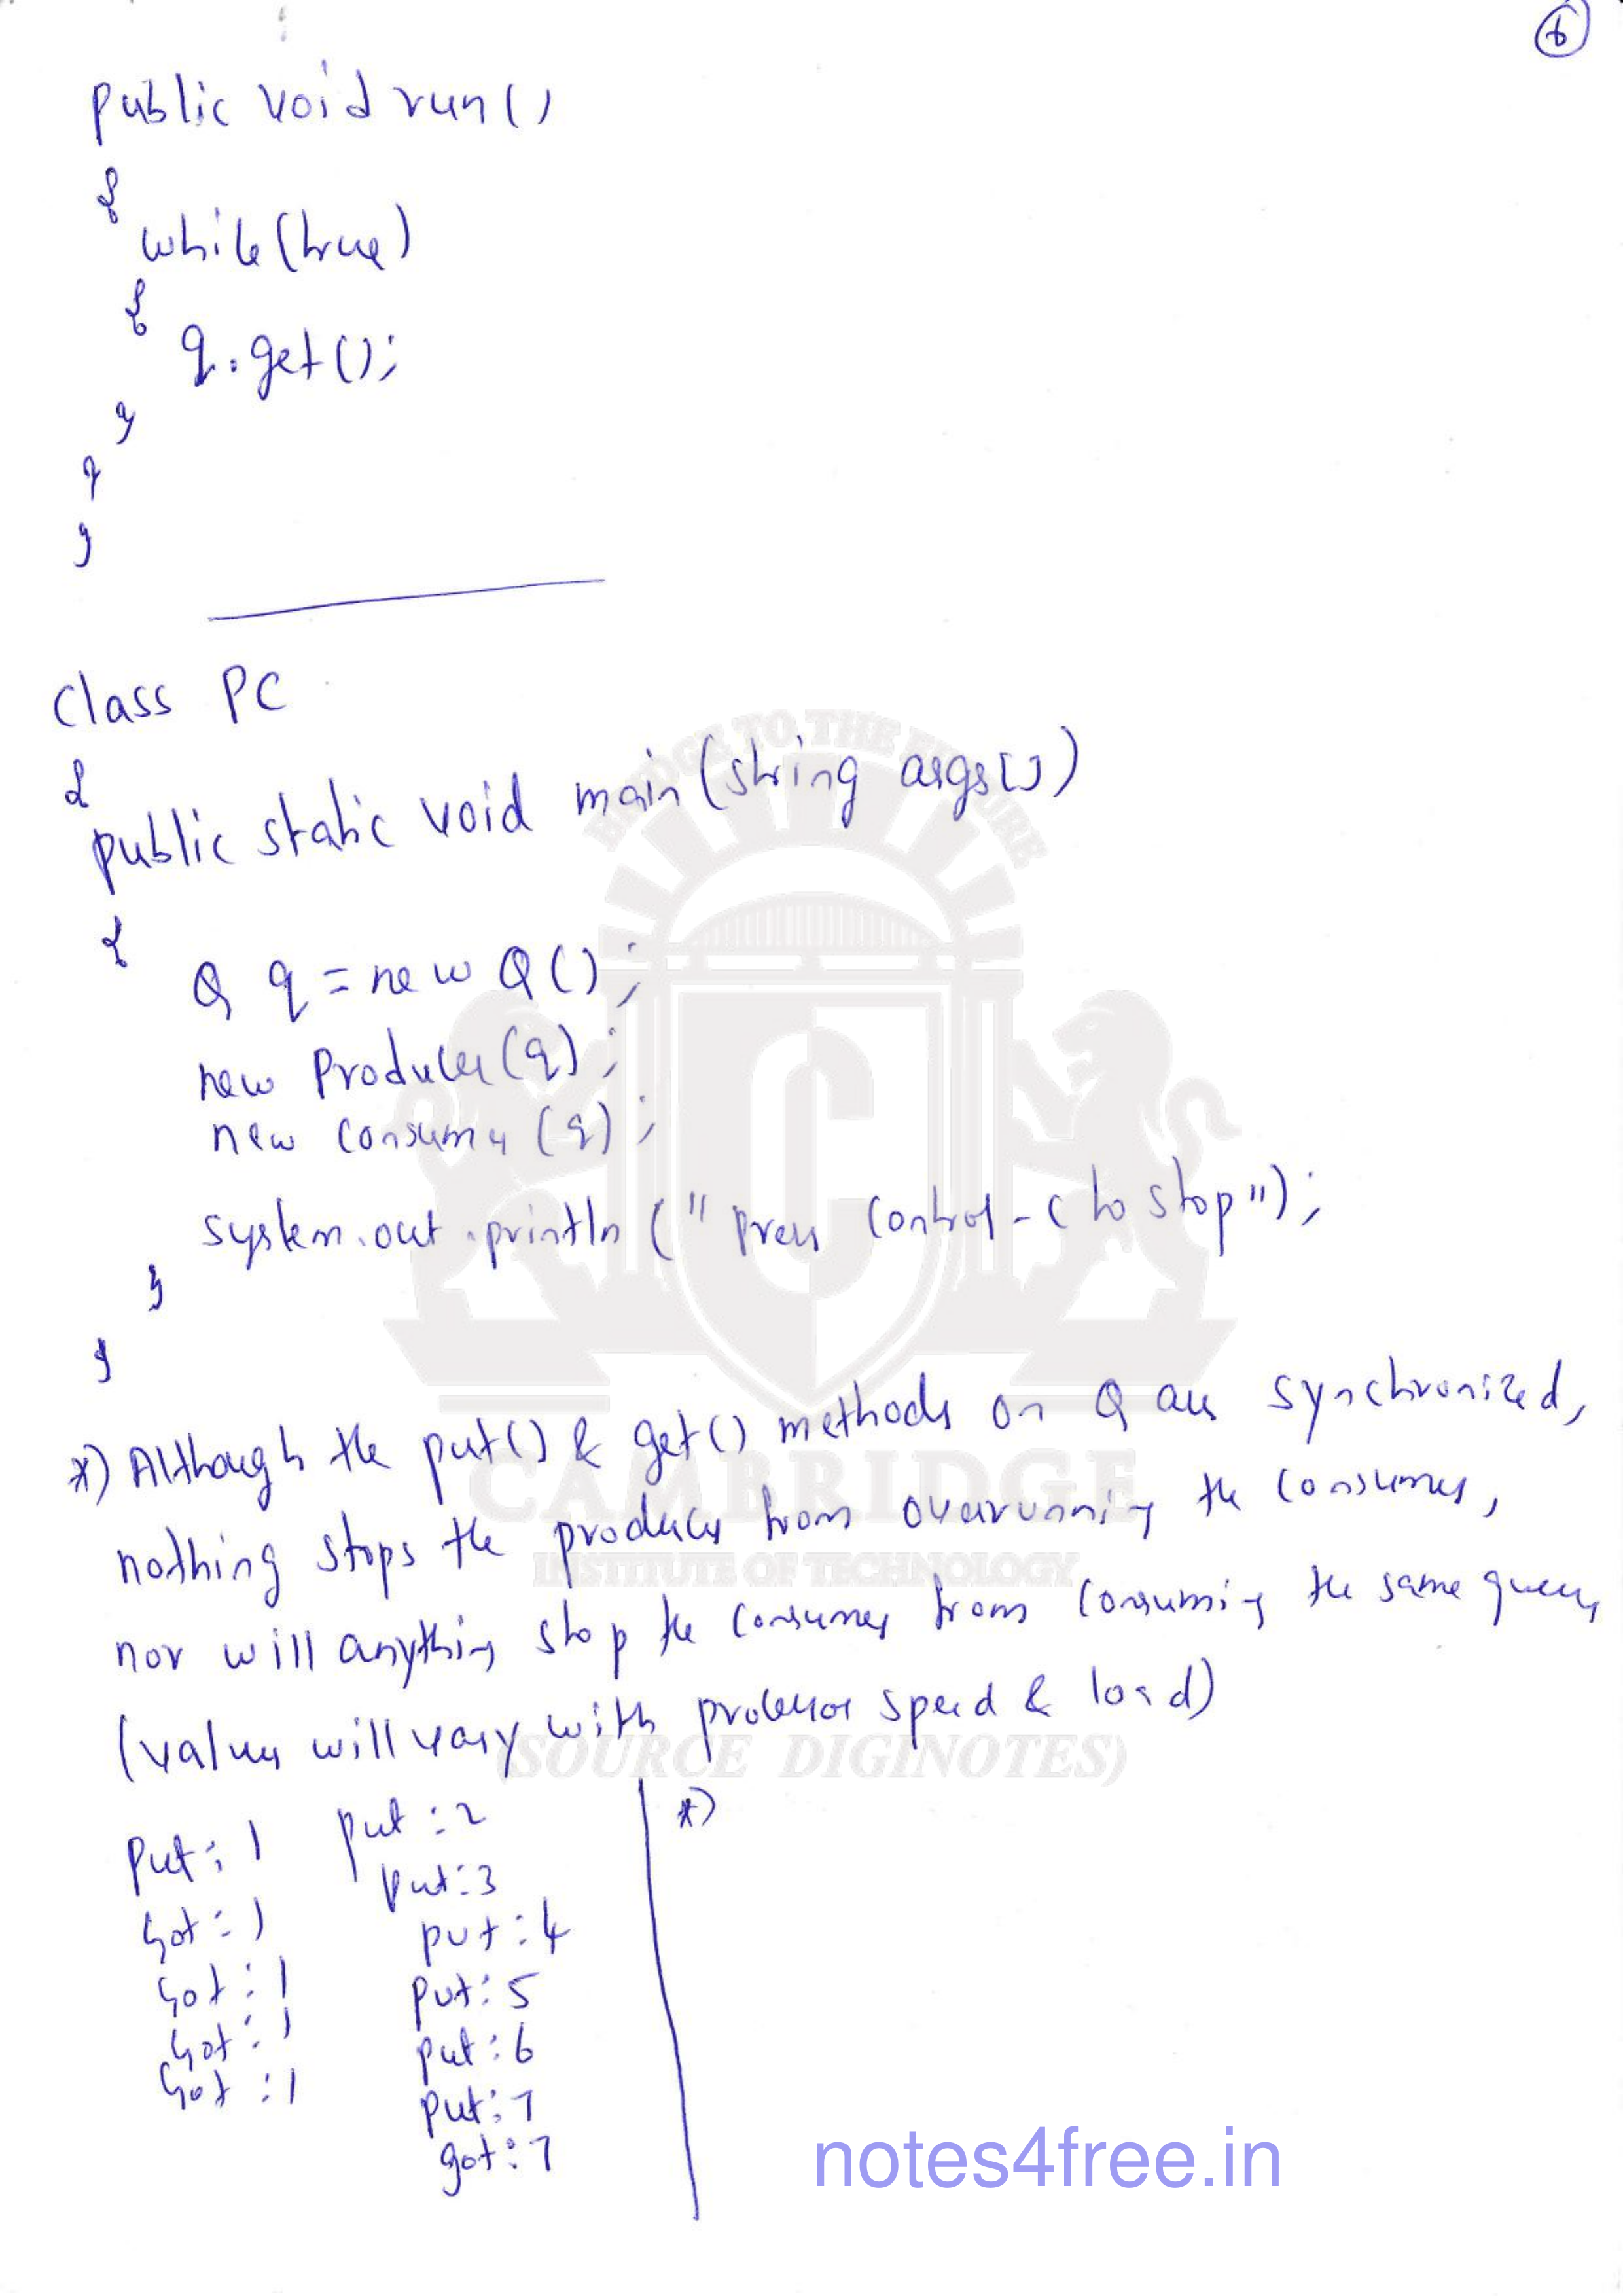 6
public void run()
{
while(true)
{
q.get();
}
}
}
class PC
{
public static void main(string args[])
{
Q q = new Q();
new Producer(q);
new Consumer(q);
system.out.println("Press Control-C to stop");
}
}
*) Although the put() & get() methods on Q are synchronized,
nothing stops the producer from overrunning the consumer,
nor will anything stop the consumer from consuming the same queue
(values will vary with processor speed & load)
Put: 1
Got: 1
Got: 1
Got: 1
Got: 1
put: 2
put: 3
put: 4
put: 5
put: 6
put: 7
got: 7
*)
BRIDGE TO THE FUTURE
C
CAMBRIDGE
INSTITUTE OF TECHNOLOGY
(SOURCE DIGINOTES)
notes4free.in